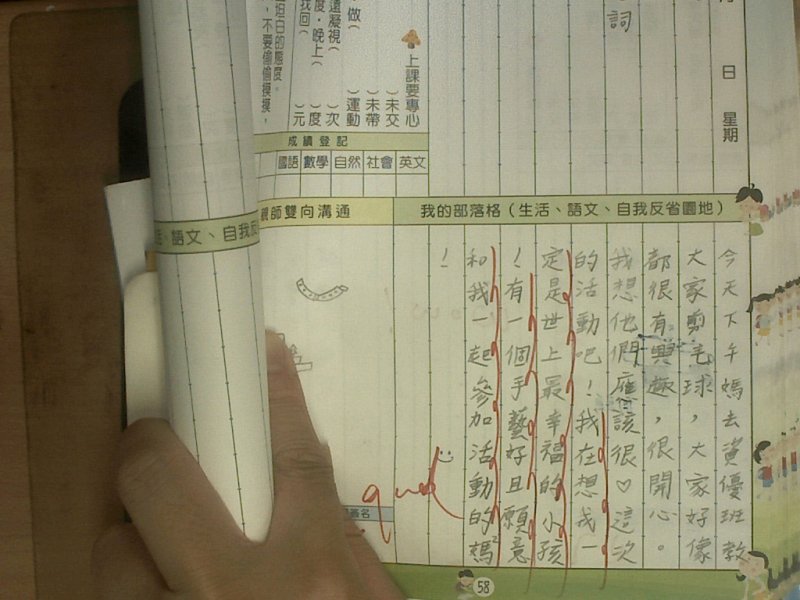 日 星期
詞
上課要專心
）未交
）未帶
做（ ）運動
遠凝視（ ）次
度，晚上（ ）度
找回（ ）元
坦白的態度。
，不要偷偷摸摸，
成績登記
國語 數學 自然 社會 英文
親師雙向溝通
我的部落格（生活、語文、自我反省園地）
、語文、自我反
今天下午媽去資優班教
大家剪毛球，大家好像
都很有興趣，很開心。
我想他們應該很♡這次
的活動吧！我在想我一
定是世上最幸福的小孩
！有一個手藝好且願意
和我一起參加活動的媽²
！
簽名
58